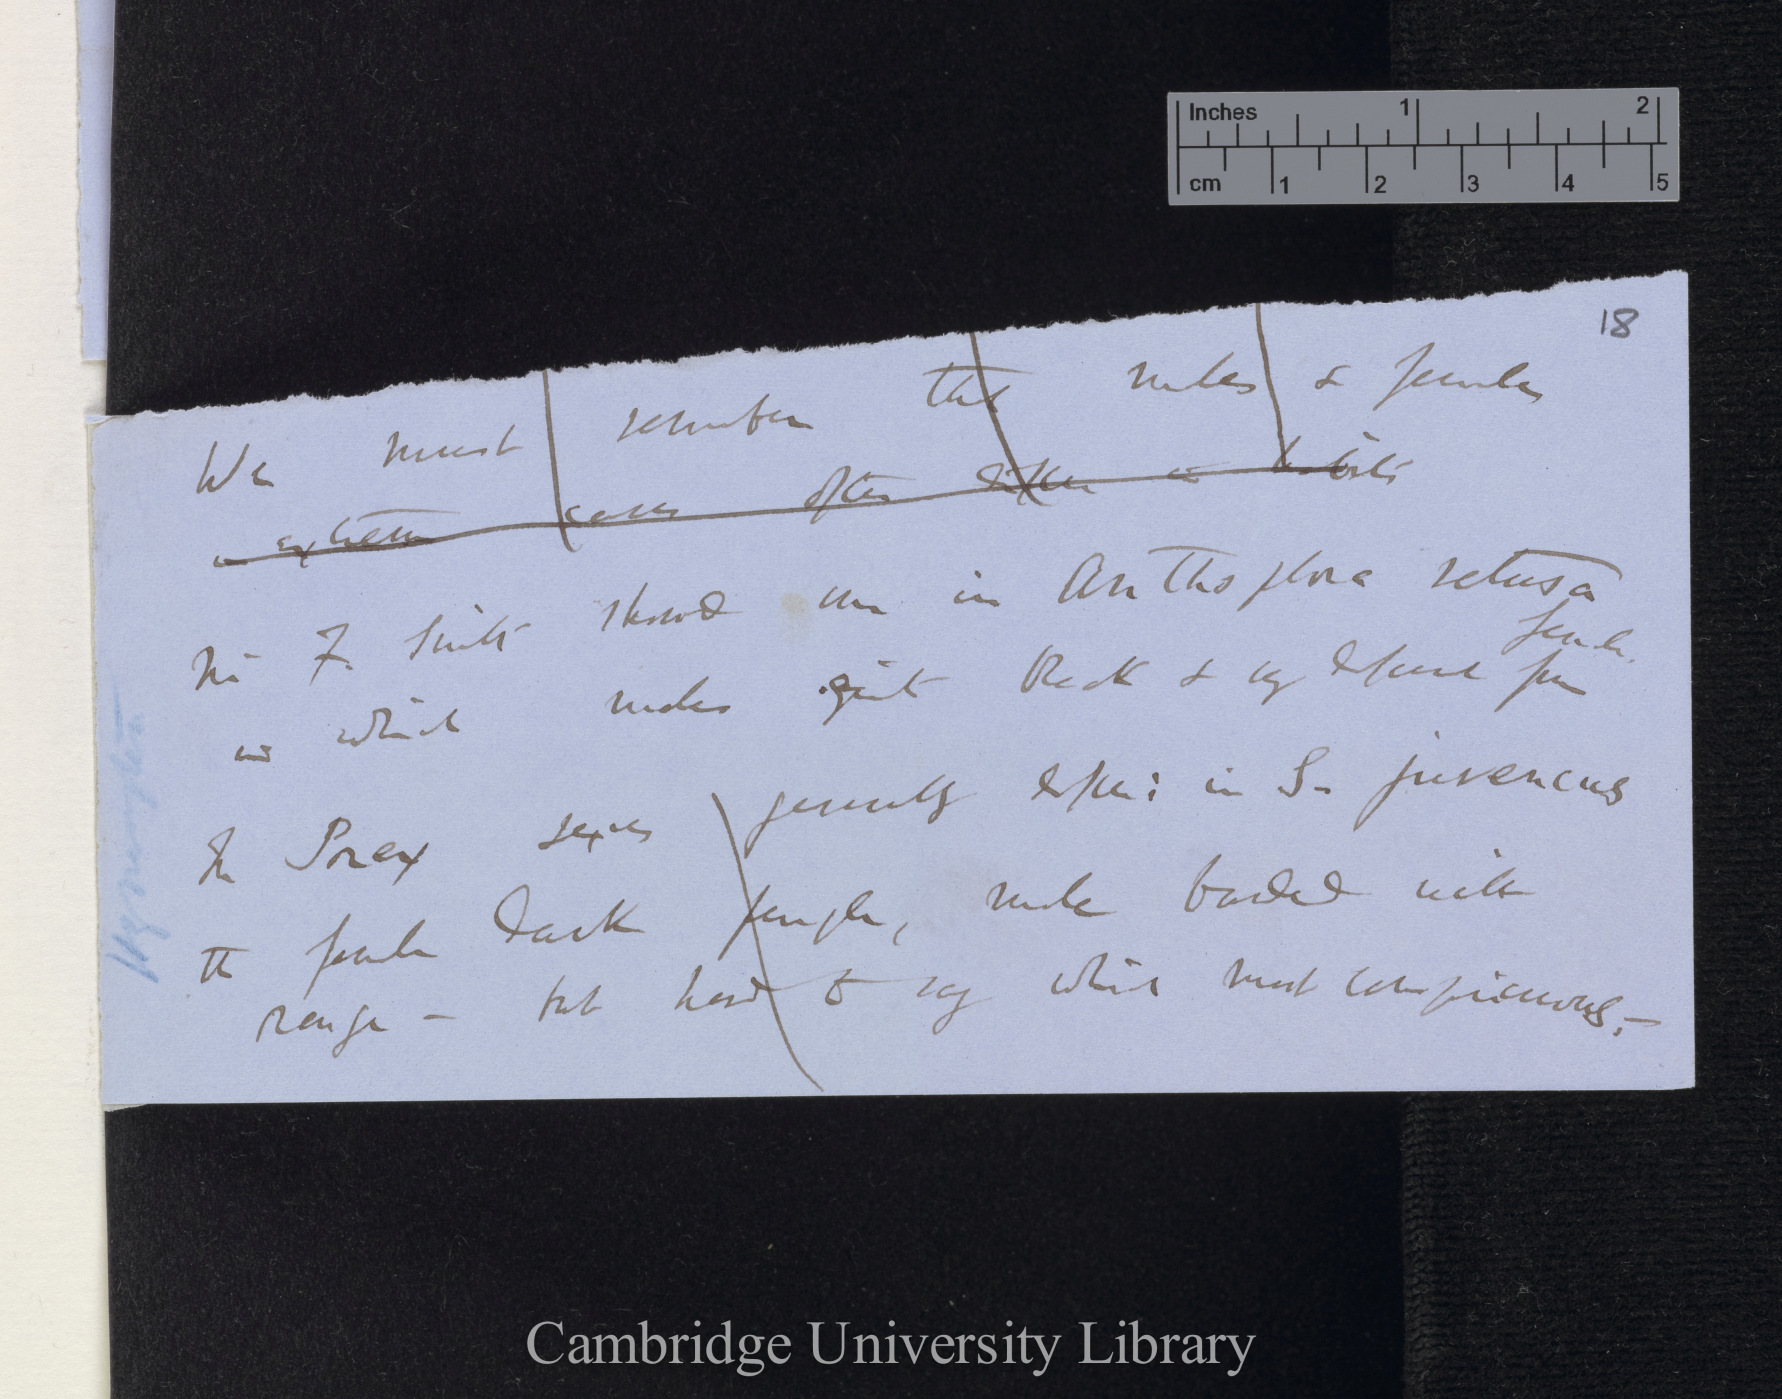 Inches 1 2
cm 1 2 3 4 5
18
We must remember that males & females
in extreme cases often differ in habits
Mr F. Smith showed me in Anthophora retusa
in which males quite Black & very different from
female.
In Sirex sexes generally differ: in S. juvencus
the female dark purple, male banded with
orange — but hard to say which most conspicuous.—
Hymenoptera
Cambridge University Library